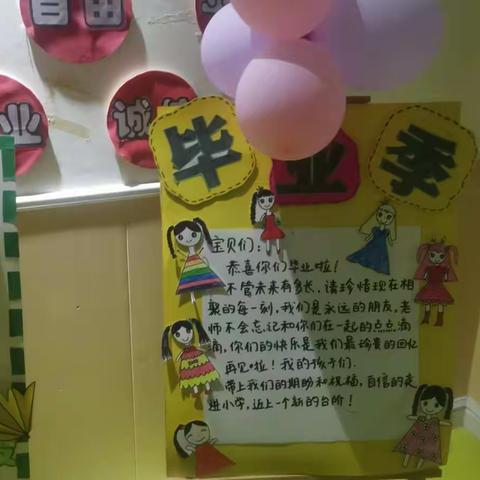 自由
业
诚
毕业季
宝贝们：
恭喜你们毕业啦！
不管未来有多长，请珍惜现在相
聚的每一刻，我们是永远的朋友，老
师不会忘记和你们在一起的点点滴
滴，你们的快乐是我们最珍贵的回忆
再见啦！我的孩子们．
带上我们的期盼和祝福，自信的走
进小学，迈上一个新的台阶！